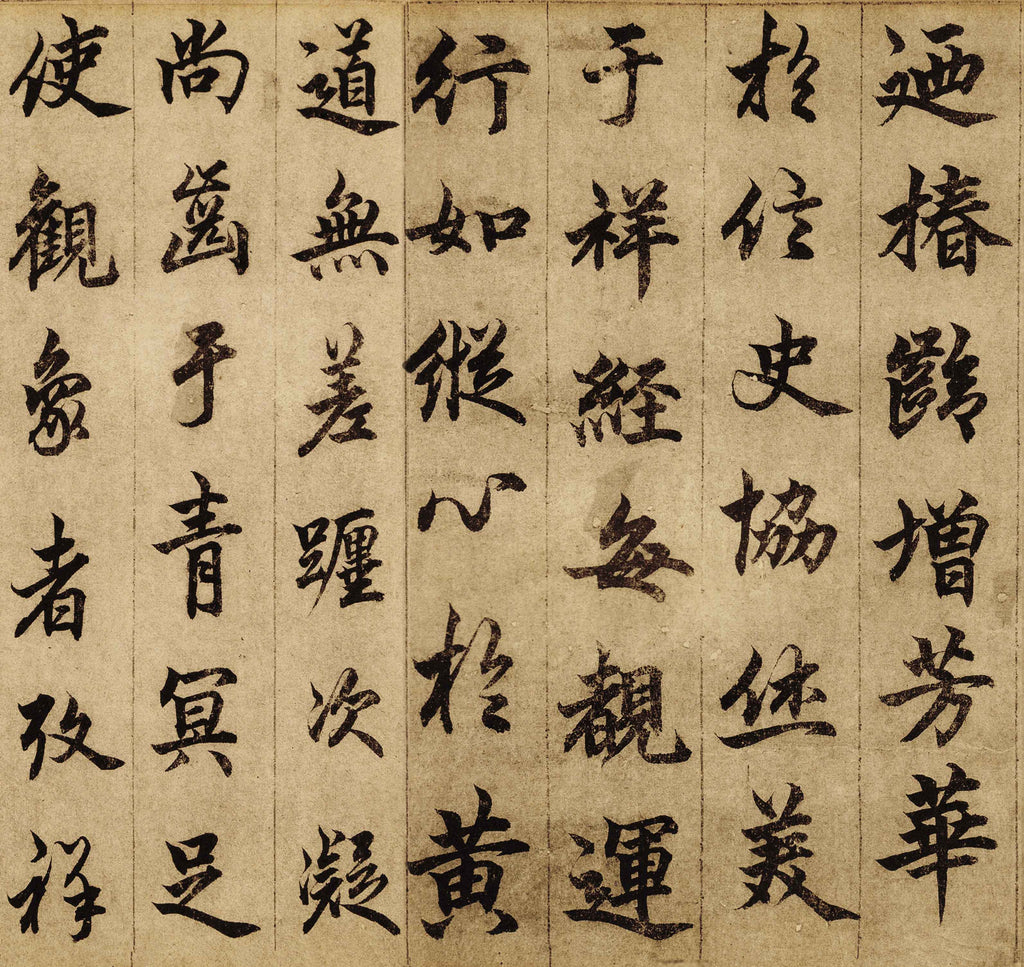 迺椿齡增芳華
於信史協休美
于祥經每覩運
行如縱心於黃
道無差躔次凝
尚齒于青冥足
使觀象者攷祥